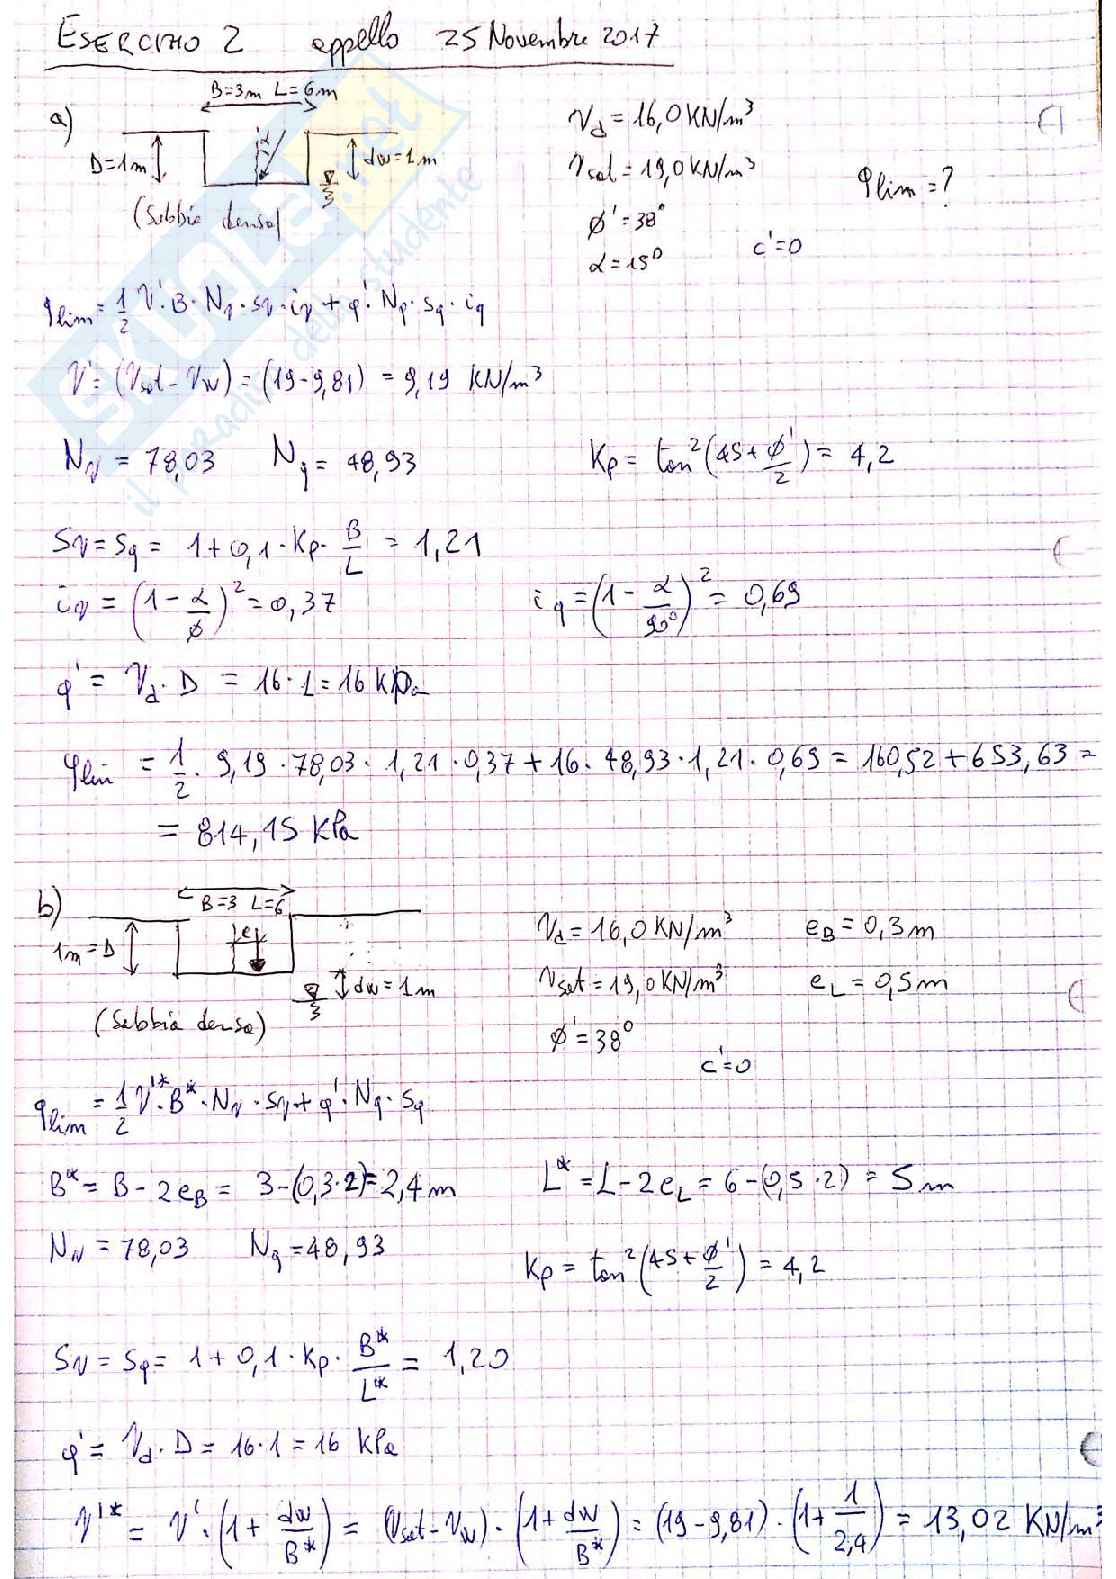 ESERCIZIO 2 appello 25 Novembre 2017
a)
B=3m L=6m
D=1m
α
dw=1m
(Sabbia densa)
γd = 16,0 KN/m³
γsat = 19,0 KN/m³
ϕ' = 38°
α = 15°
c'=0
qlim = ?
qlim = 1/2 γ'·B·Nγ·sγ·iγ + q'·Nq·sq·iq
γ' = (γsat - γw) = (19-9,81) = 9,19 KN/m³
Nγ = 78,03 Nq = 48,93 Kp = tan²(45+ϕ'/2) = 4,2
Sγ = Sq = 1+0,1·Kp·B/L = 1,21
iγ = (1 - α/ϕ)² = 0,37 iq = (1 - α/90°)² = 0,69
q' = γd · D = 16·1 = 16 KPa
qlim = 1/2 · 9,19 · 78,03 · 1,21 · 0,37 + 16 · 48,93 · 1,21 · 0,69 = 160,52 + 653,63 =
= 814,15 KPa
b)
B=3 L=6
1m=D
e
dw=1m
(Sabbia densa)
γd = 16,0 KN/m³ eB = 0,3m
γsat = 19,0 KN/m³ eL = 0,5m
ϕ' = 38°
c'=0
qlim = 1/2 γ'*·B*·Nγ·sγ + q'·Nq·sq
B* = B - 2eB = 3-(0,3·2) = 2,4 m L* = L - 2eL = 6-(0,5·2) = 5m
Nγ = 78,03 Nq = 48,93 Kp = tan²(45+ϕ'/2) = 4,2
Sγ = Sq = 1+0,1·Kp·B*/L* = 1,20
q' = γd · D = 16·1 = 16 KPa
γ'* = γ'·(1+dw/B*) = (γsat-γw)·(1+dw/B*) = (19-9,81)·(1+1/2,4) = 13,02 KN/m³
SKUOLA.net
il paradiso dello studente